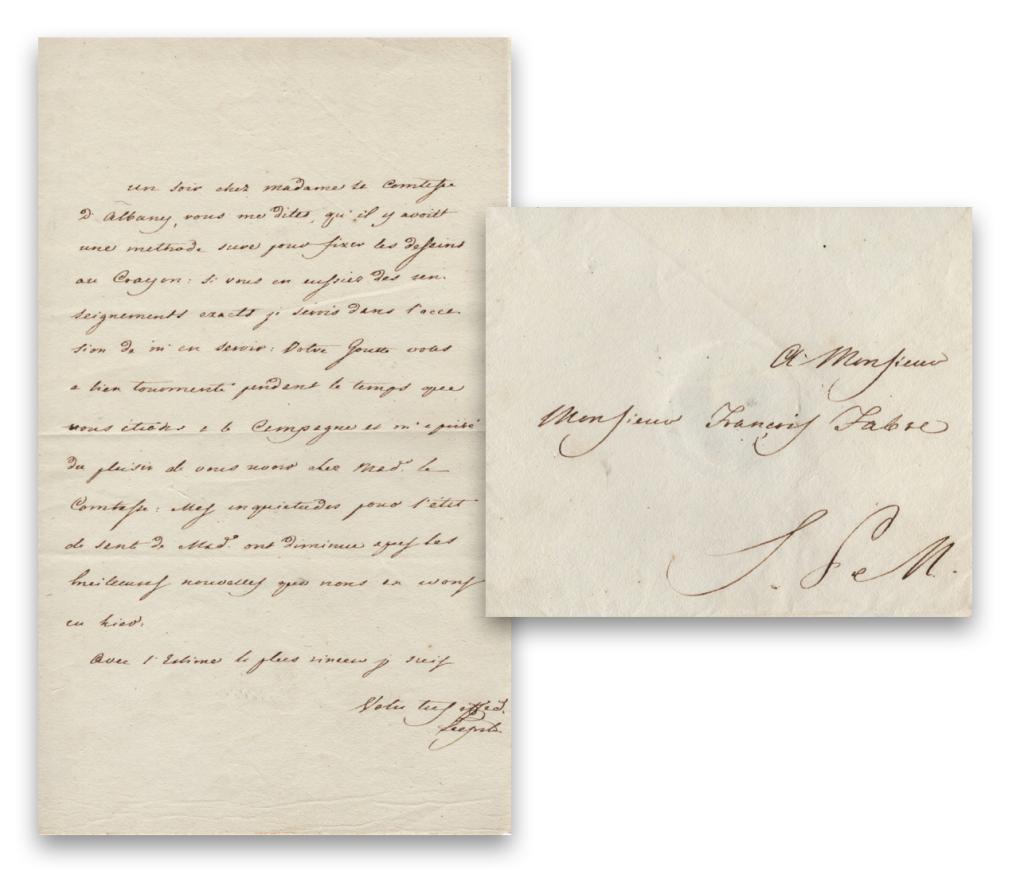 un soir chez madame le Comtesse
D Albany, vous me dites, qu'il y avoitt
une methode sure pour fixer les desseins
au Crayon: si vous en eussiez des ren-
seignements exacts je serois dans l'occa-
sion de m'en servir: Votre Goutte vous
a bien tourmenté pendent le temps que
vous étiez a la Campagne et m'a privé
du plaisir de vous voir chez Mad.e la
Comtesse: Mes inquietudes pour l'état
de senté de Mad.e ont diminue apres les
meilleures nouvelles que nous en avons
eu hier.
Avec l'Estime la plus sincere je suis
Votre tres affec.
A Monsieur
Monsieur François Fabre
S. P. M.